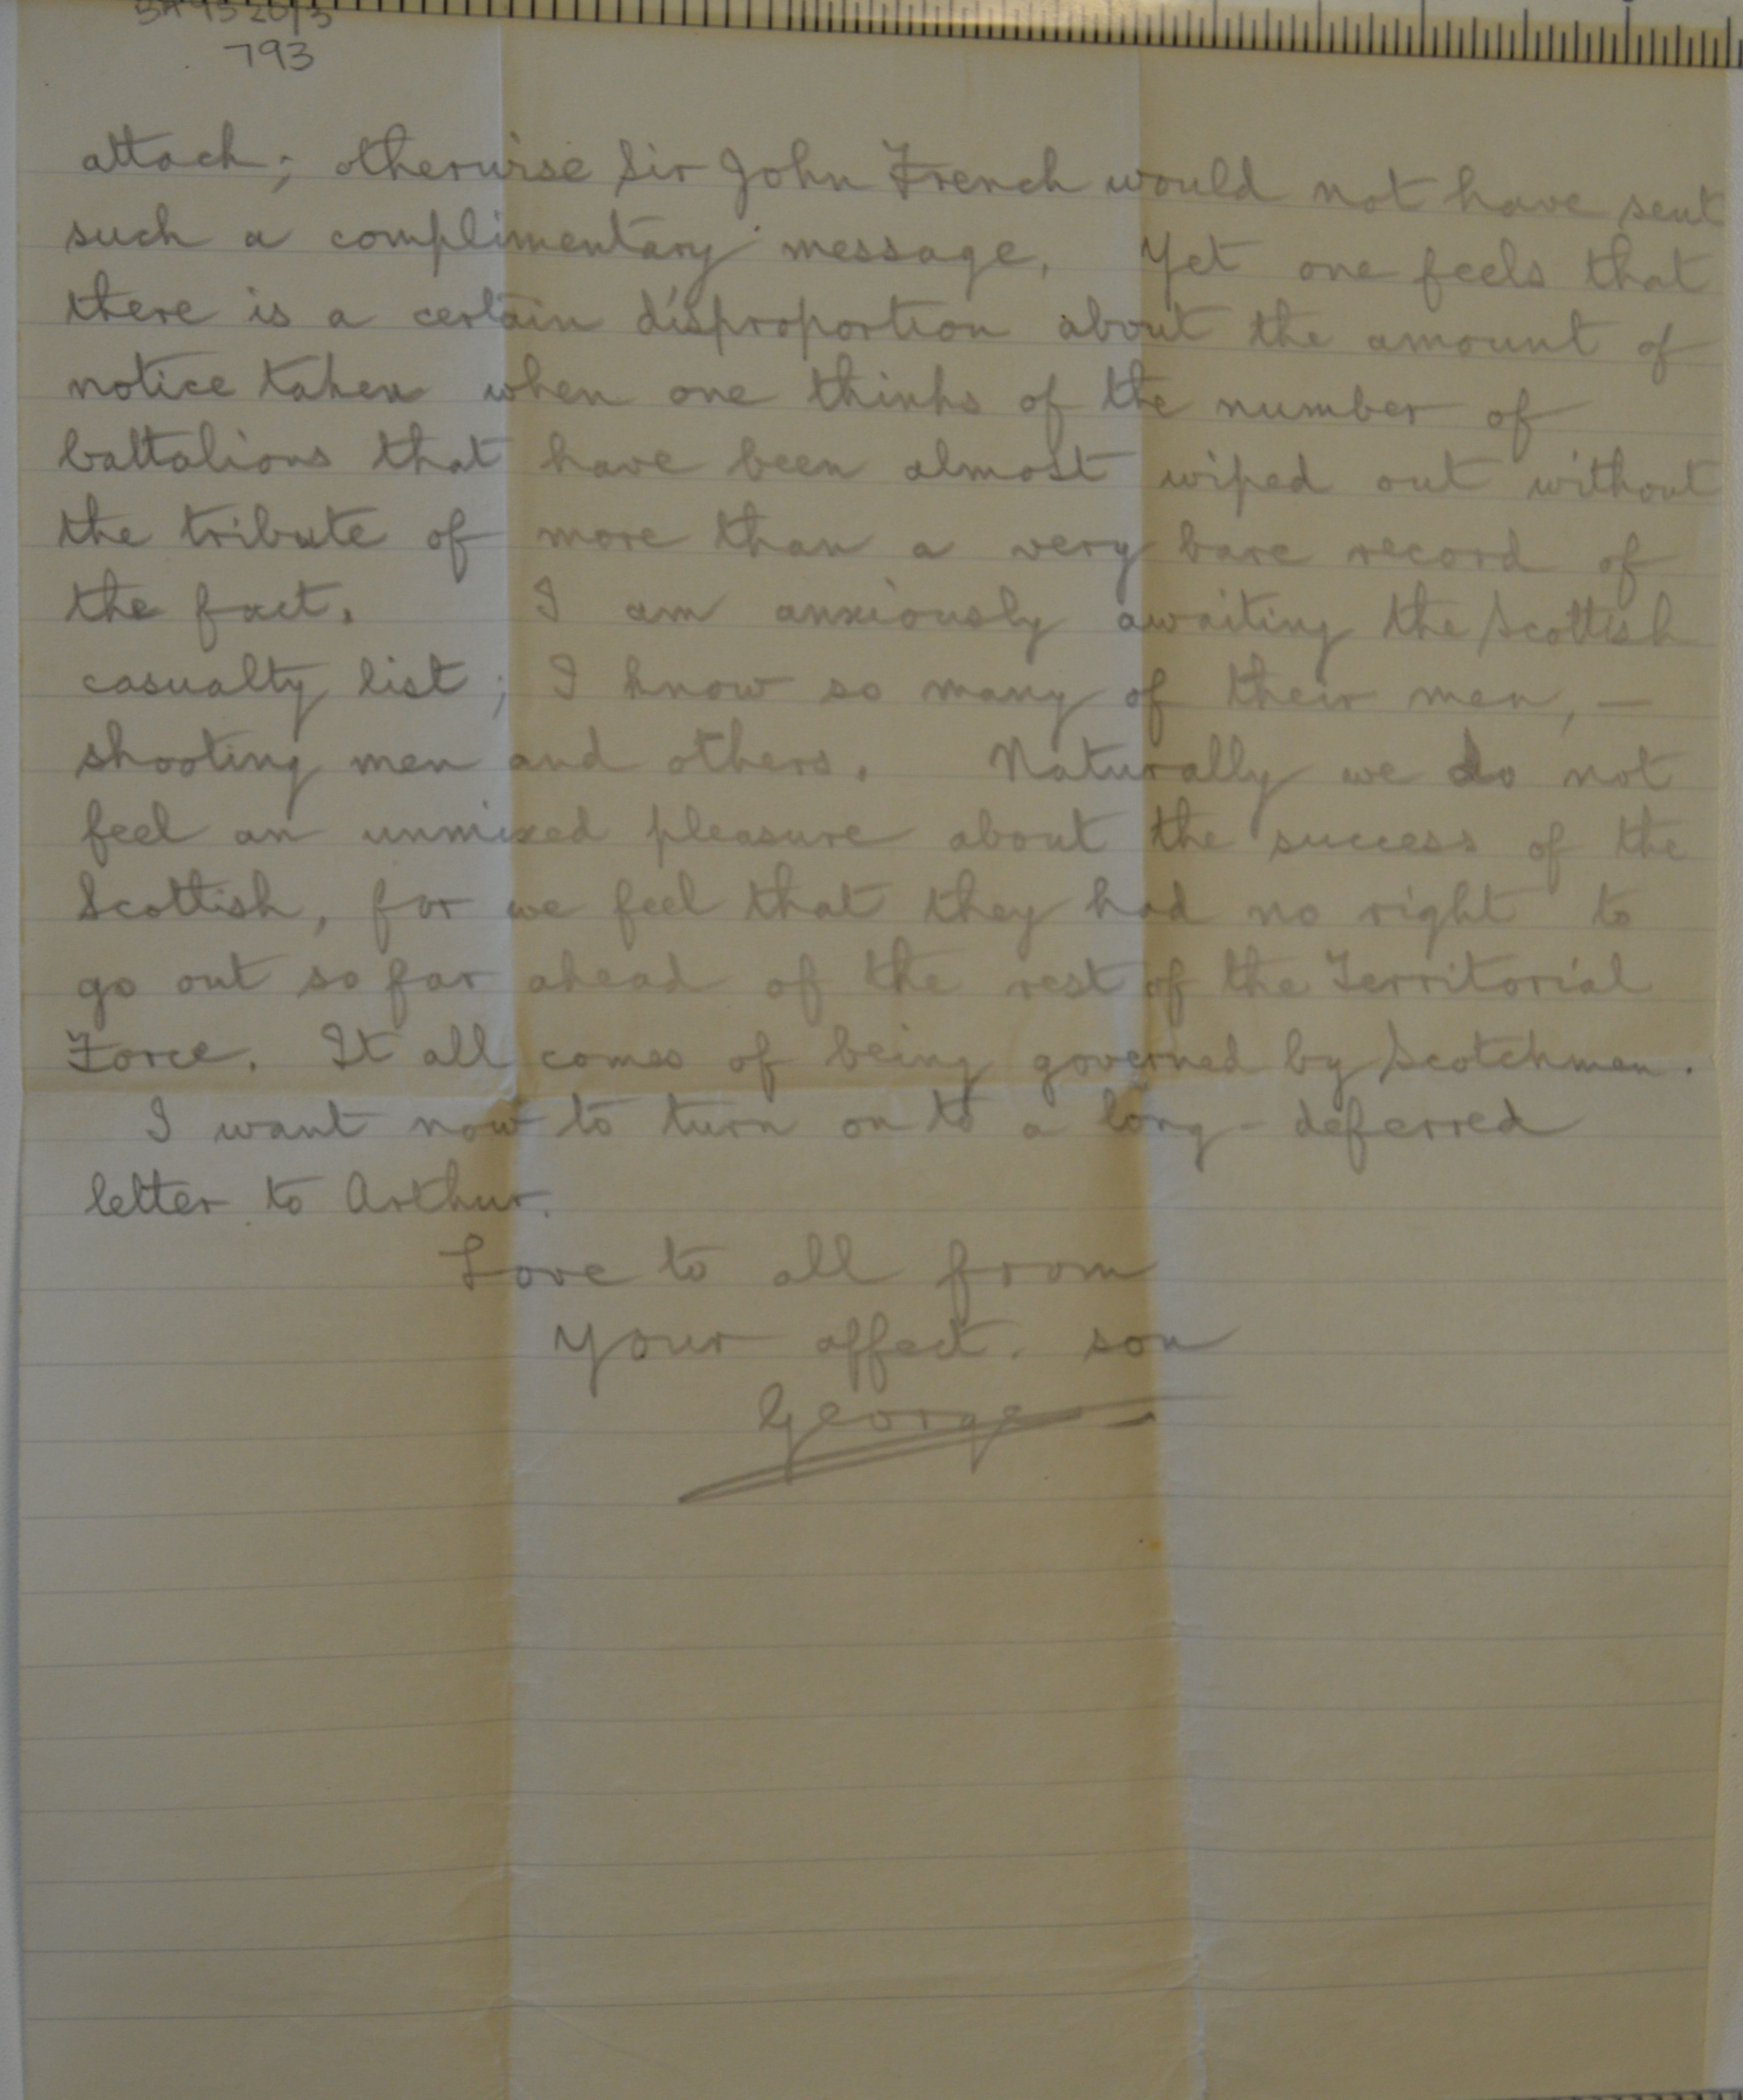 793
attack; otherwise Sir John French would not have sent
such a complimentary message. Yet one feels that
there is a certain disproportion about the amount of
notice taken when one thinks of the number of
battalions that have been almost wiped out without
the tribute of more than a very bare record of
the fact. I am anxiously awaiting the Scottish
casualty list; I know so many of their men, —
shooting men and others. Naturally we do not
feel an unmixed pleasure about the success of the
Scottish, for we feel that they had no right to
go out so far ahead of the rest of the Territorial
Force. It all comes of being governed by Scotchmen.
I want now to turn on to a long-deferred
letter to Arthur.
Love to all from
Your affect. son
George